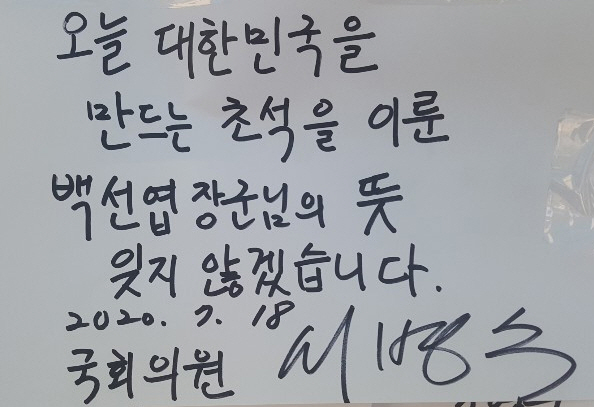 오늘 대한민국을
만드는 초석을 이룬
백선엽장군님의 뜻
잊지 않겠습니다.
2020. 7. 18
국회의원 서병수